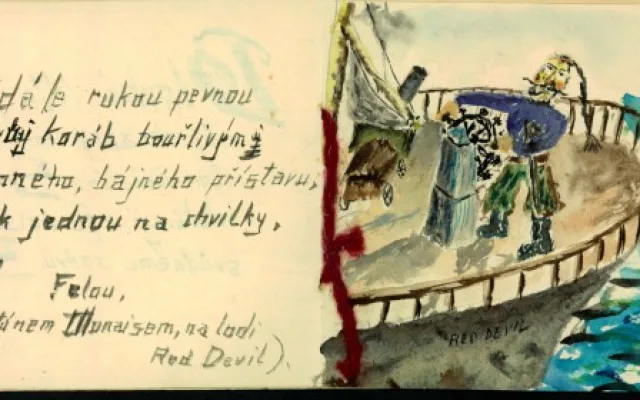 dále rukou pevnou
koráb bouřlivými
ného, bájného přístavu,
k jednou na chvilky,
Felou,
Munaisem, na lodi
Red Devil).
RED DEVIL